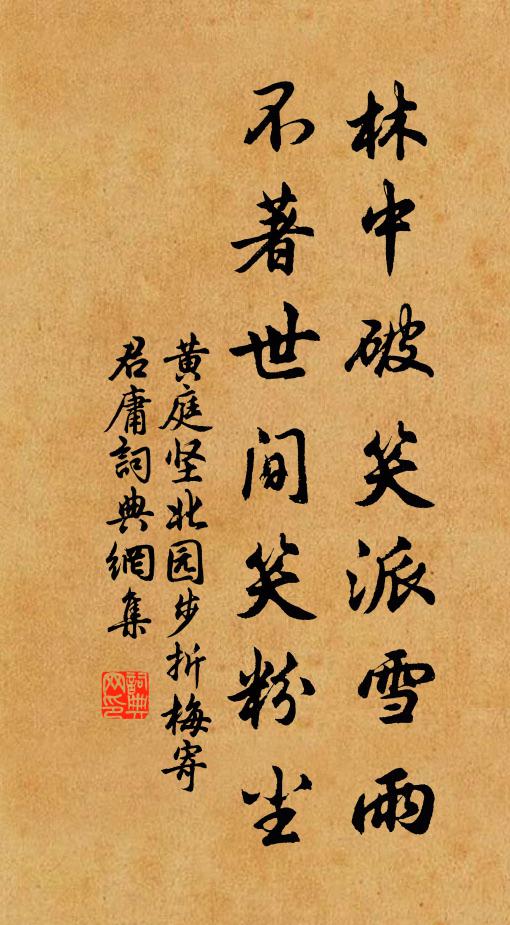 林中破笑派雪雨
不著世间笑粉尘
黄庭坚北园步折梅寄
君庸詞典網集
詞典
网印